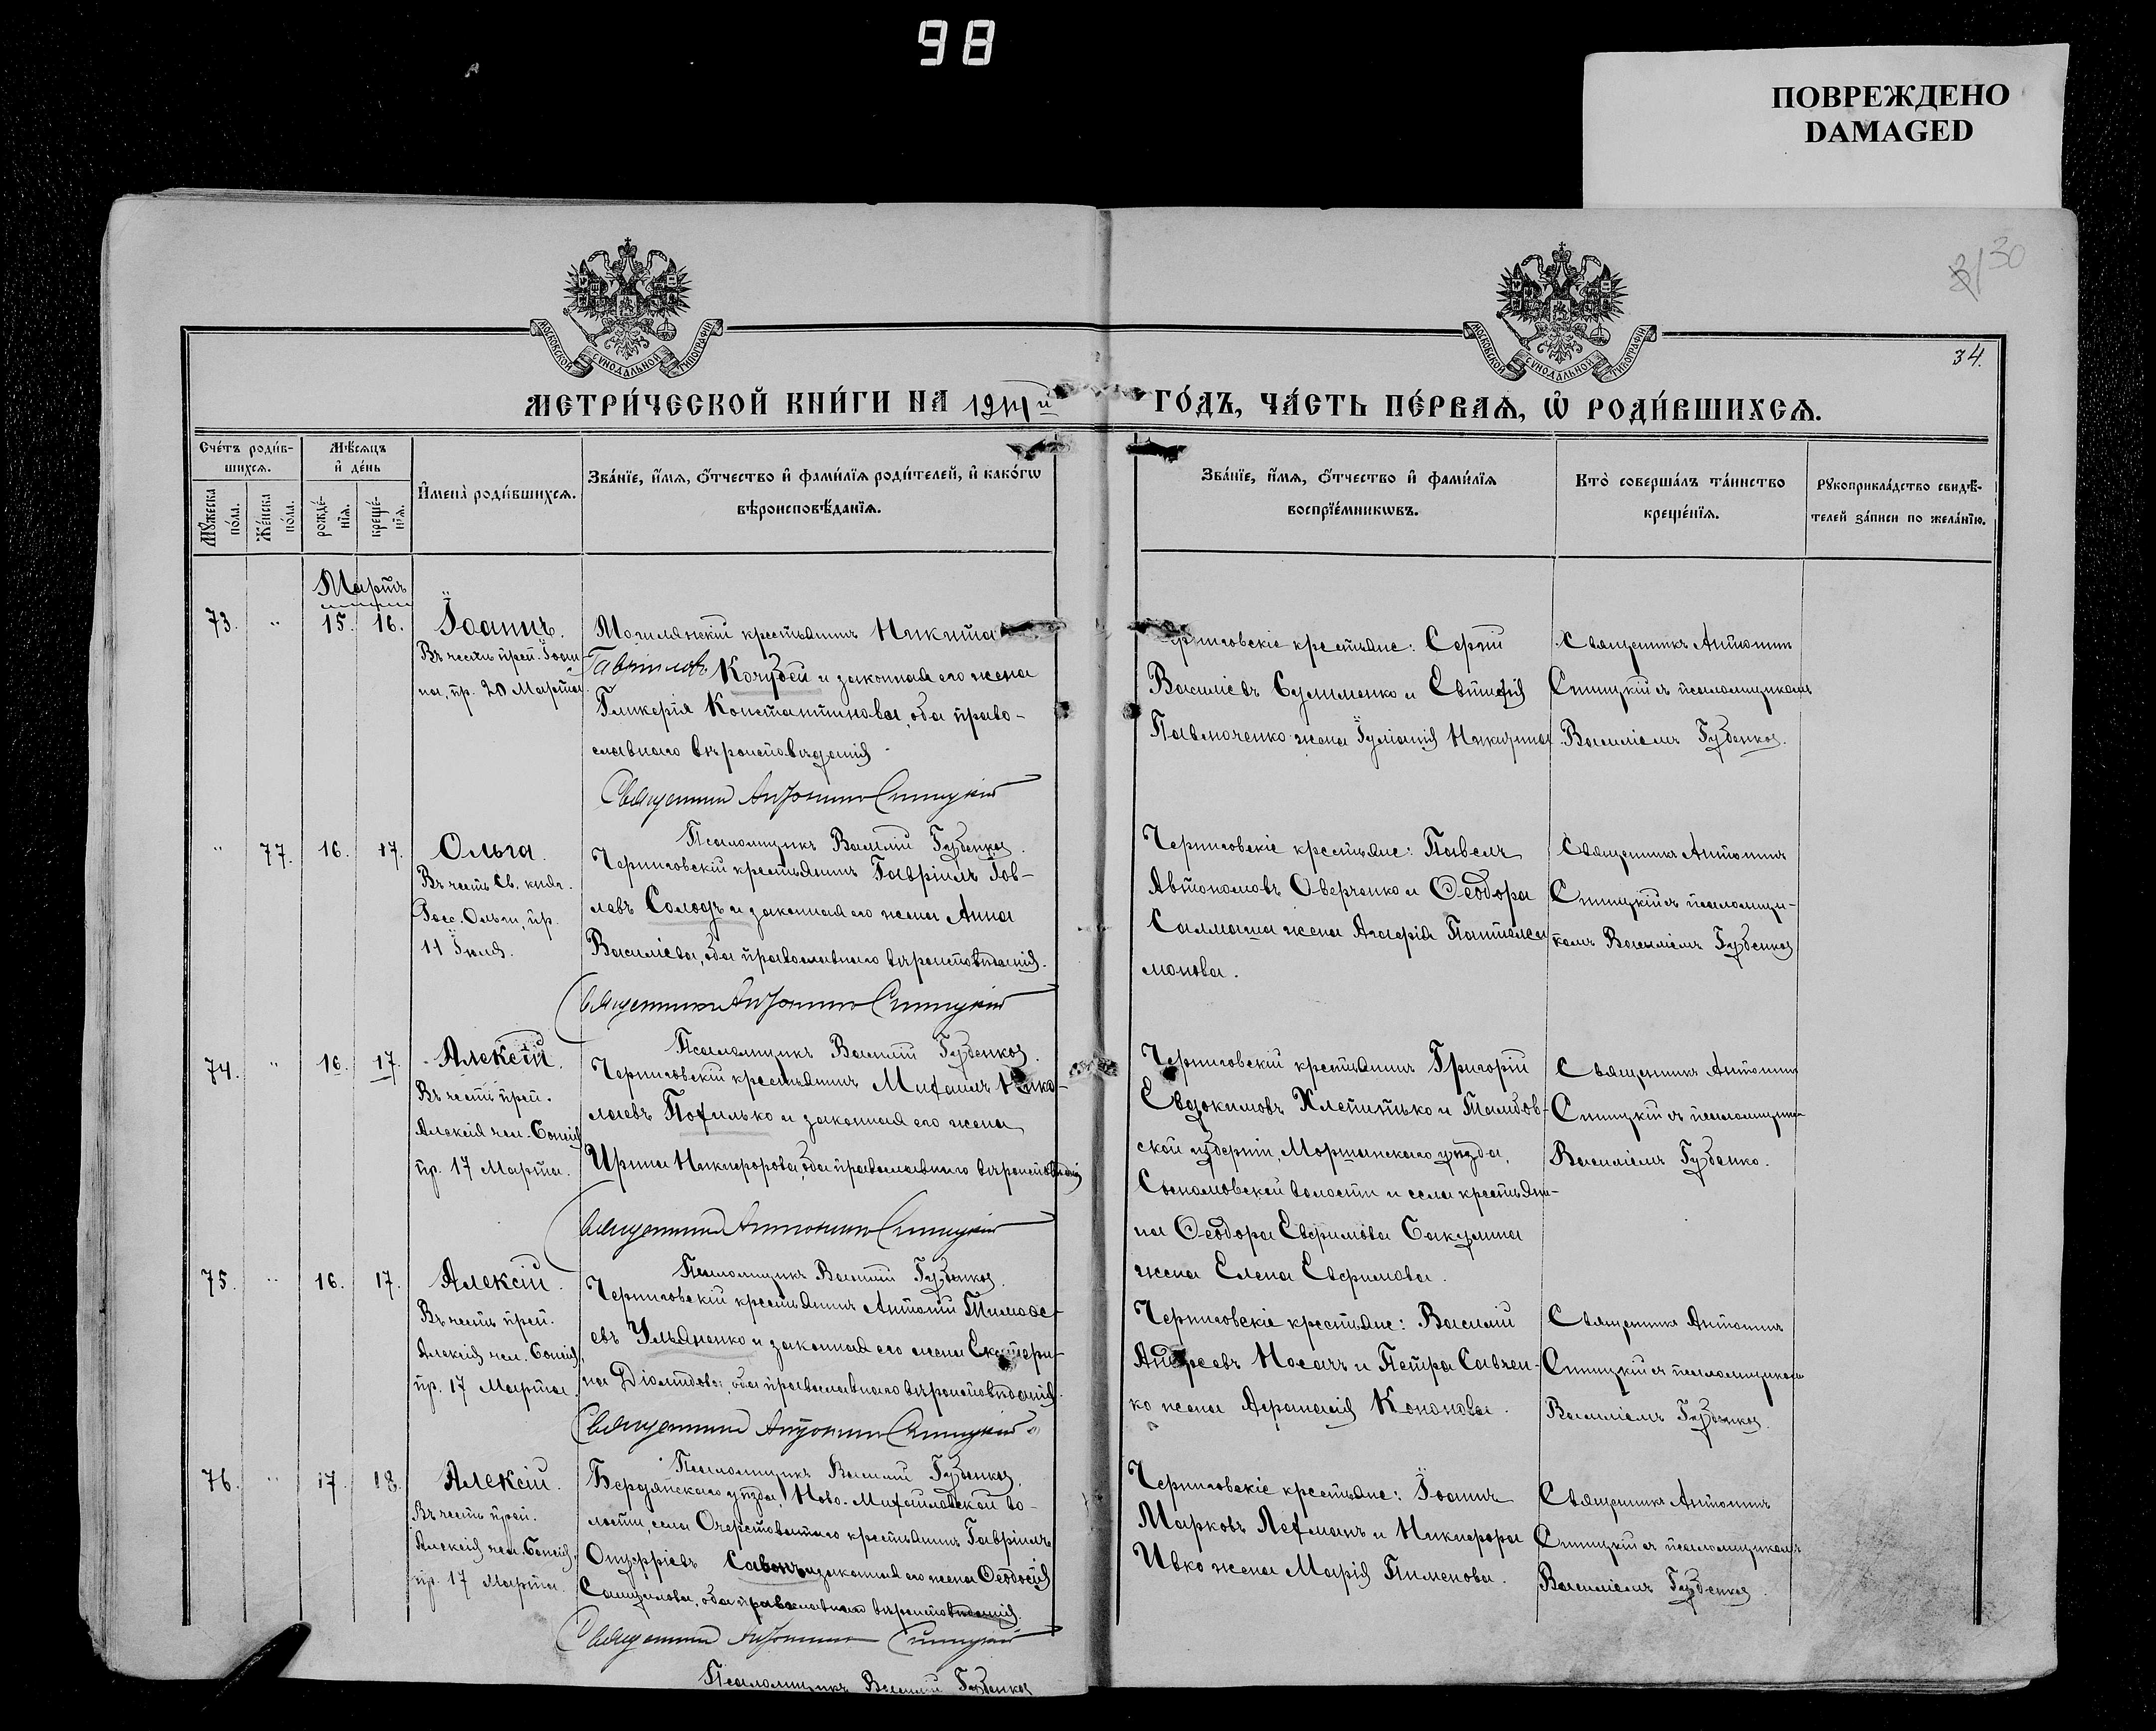 98
ПОВРЕЖДЕНО
DAMAGED
30
34.
МОСКОВСКОЙ СѴНОДАЛЬНОЙ ТИПОГРАФІИ
МОСКОВСКОЙ СѴНОДАЛЬНОЙ ТИПОГРАФІИ
МЕТРИ́ЧЕСКОЙ КНИ́ГИ НА
ГО́ДЪ, ЧА́СТЬ ПЕ́РВАЯ, Ѡ҆ РОДИ́ВШИХСЯ.
Сче́тъ роди́в-
шихся.
Мѣ́сяцъ
и҆ де́нь
Мꙋ́жеска
по́ла.
Же́нска
по́ла.
рожде́-
нїя.
креще́-
нїя.
И҆мена̀ роди́вшихся.
Зва́нїе, и҆́мя, ѻ҆́тчество и҆ фами́лїя роди́телей, и҆ како́гѡ
вѣроисповѣ́данїя.
Зва́нїе, и҆́мя, ѻ҆́тчество и҆ фами́лїя
воспрїе́мникѡвъ.
Кто̀ соверша́лъ та́инство
креще́нїя.
Рꙋкоприкла́дство свидѣ́-
телей за́писи по жела́нїю.
Мартъ
73. " 15. 16. Іоаннъ.
Въ честь преп. Іоан-
на, пр. 20 Марта.
Могилянскій крестьянинъ Никита
Гавріиловъ Кочубей и законная его жена
Гликерія Константинова, оба право-
славнаго вѣроисповѣданія
Священникъ Антонинъ Синицкій
Псаломщикъ Василій Губенко.
Черниговскіе крестьяне: Сергій
Василіевъ Сулименко и Евтихія
Павлюченко жена Іуліанія Никитина
Священникъ Антонинъ
Синицкій съ псаломщикомъ
Василіемъ Губенко.
" 77. 16. 17. Ольга.
Въ честь св. княг.
Росс. Ольги, пр.
11 Іюля.
Черниговскій крестьянинъ Гавріилъ Іов-
левъ Солодъ и законная его жена Анна
Василіева, оба православнаго вѣроисповѣданія.
Священникъ Антонинъ Синицкій
Псаломщикъ Василій Губенко.
Черниговскіе крестьяне: Павелъ
Автономовъ Оверченко и Ѳеодора
Салмаша жена Агафія Пантелеи-
монова.
Священникъ Антонинъ
Синицкій съ псаломщи-
комъ Василіемъ Губенко
74. " 16. 17. Алексій.
Въ честь преп.
Алексія чел. Божія
пр. 17 Марта.
Черниговскій крестьянинъ Михаилъ Нико-
лаевъ Похилько и законная его жена
Ирина Никифорова, оба православнаго вѣроисповѣданія
Священникъ Антонинъ Синицкій
Псаломщикъ Василій Губенко.
Черниговскій крестьянинъ Григорій
Евдокимовъ Хлепитько и Тамбов-
ской губерніи, Моршанскаго уѣзда,
волости и села крестьяни-
на Ѳеодора Евфимова Бакулина
жена Елена Евфимова.
Священникъ Антонинъ
Синицкій съ псаломщикомъ
Василіемъ Губенко.
75. " 16. 17. Алексій.
Въ честь преп.
Алексія чел. Божія,
пр. 17 Марта.
Черниговскій крестьянинъ Антоній Тимоѳе-
евъ Ульяненко и законная его жена Екатери-
на Діомидова, оба православнаго вѣроисповѣданія.
Священникъ Антонинъ Синицкій
Псаломщикъ Василій Губенко.
Черниговскіе крестьяне: Василій
Андреевъ Носачъ и Петра Савчен-
ко жена Афанасія Кононова.
Священникъ Антонинъ
Синицкій съ псаломщикомъ
Василіемъ Губенко.
76. " 17. 18. Алексій.
Въ честь преп.
Алексія чел. Божія,
пр. 17 Марта.
Бердянскаго уѣзда, Ново-Михайловской во-
лости, села Очеретоватаго крестьянинъ Гавріилъ
Онуфріевъ Савонъ и законная его жена Ѳеодосія
Самуилова, оба православнаго вѣроисповѣданія.
Священникъ Антонинъ Синицкій
Псаломщикъ Василій Губенко
Черниговскіе крестьяне: Іоаннъ
Марковъ Лехманъ и Никифора
Ивко жена Марія Пименова.
Священникъ Антонинъ
Синицкій съ псаломщикомъ
Василіемъ Губенко.